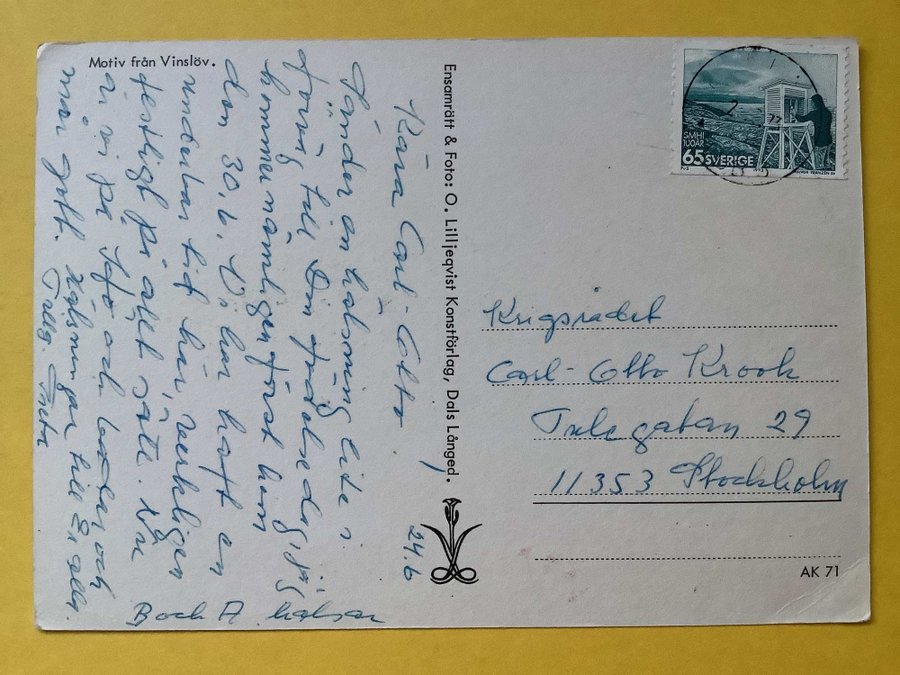 Motiv från Vinslöv.
24.6
Kära Carl-Otto
Sänder en hälsning lite i
förväg till Din födelsedag, jag
kommer nämligen först hem
den 30.6. Vi har haft en
underbar tid här, verkligen
festligt på allt sätt. Nu
är vi på och badar och
mår gott. Hälsningar till Er alla.
Tillg. Greta
B och A hälsar
Ensamrätt & Foto: O. Lilljeqvist Konstförlag, Dals Långed.
SMHI
100 ÅR
65 SVERIGE
Krigsrådet
Carl-Otto Krook
Tulegatan 29
11353 Stockholm
AK 71